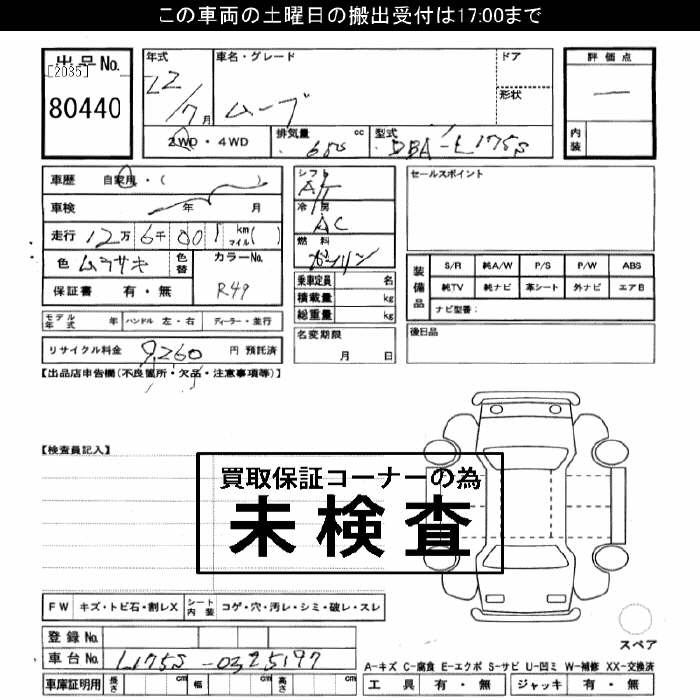 この車両の土曜日の搬出受付は17:00まで
出品No.
[2035]
80440
年式
22/7月
車名・グレード
ムーブ
ドア
形状
評価点
内装
2WD・4WD
排気量 cc
型式
DBA-L175S
車歴 自家用・( )
車検 年 月
走行 12万6千001 km マイル( )
色 ムラサキ
色替
カラーNo.
R49
保証書 有・無
モデル年式 年
ハンドル 左・右
ディーラー・並行
リサイクル料金 9,260 円 預託済
シフト
AT
冷房
AC
燃料
ガソリン
乗車定員 名
積載量 kg
総重量 kg
名変期限
月 日
セールスポイント
装備品
S/R 純A/W P/S P/W ABS
純TV 純ナビ 革シート 外ナビ エアB
ナビ型番:
後日品
【出品店申告欄(不良箇所・欠品・注意事項等)】
【検査員記入】
買取保証コーナーの為
未検査
FW キズ・トビ石・割レX
シート内装 コゲ・穴・汚レ・シミ・破レ・スレ
登録No.
車台No. L175S-0325197
車庫証明用 長さ cm 幅 cm 高さ cm
スペア
A-キズ C-腐食 E-エクボ S-サビ U-凹ミ W-補修 XX-交換済
工具 有・無 ジャッキ 有・無